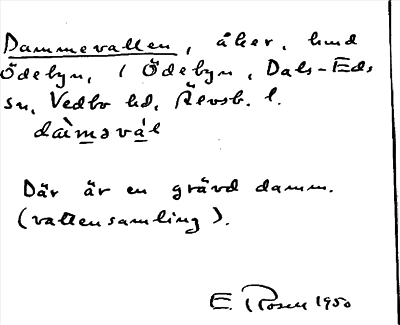 Dammevallen, åker, hmd
Ödebyn, i Ödebyn, Dals-Eds
sn, Vedbo hd, Älvsb. l.
dàməvál
Där är en grävd damm.
(vattensamling).
E. Rosen 1950